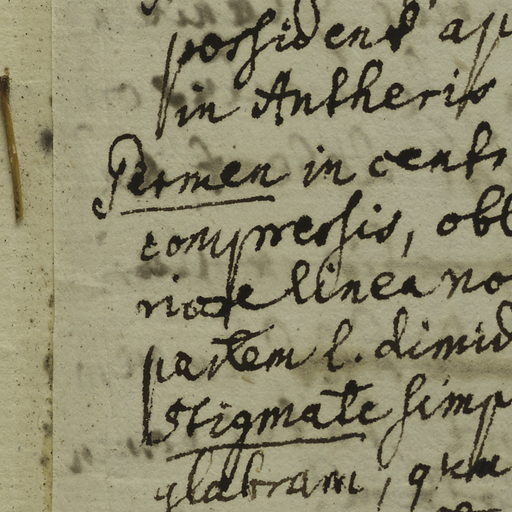 possident ap
in Antheris
Germen in centr
compressis, obl
riore linea no
partem l. dimid
Stigmate simp
glabram, qum